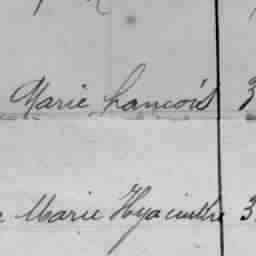 Marie Francois 3
Marie Hyacinthe 3